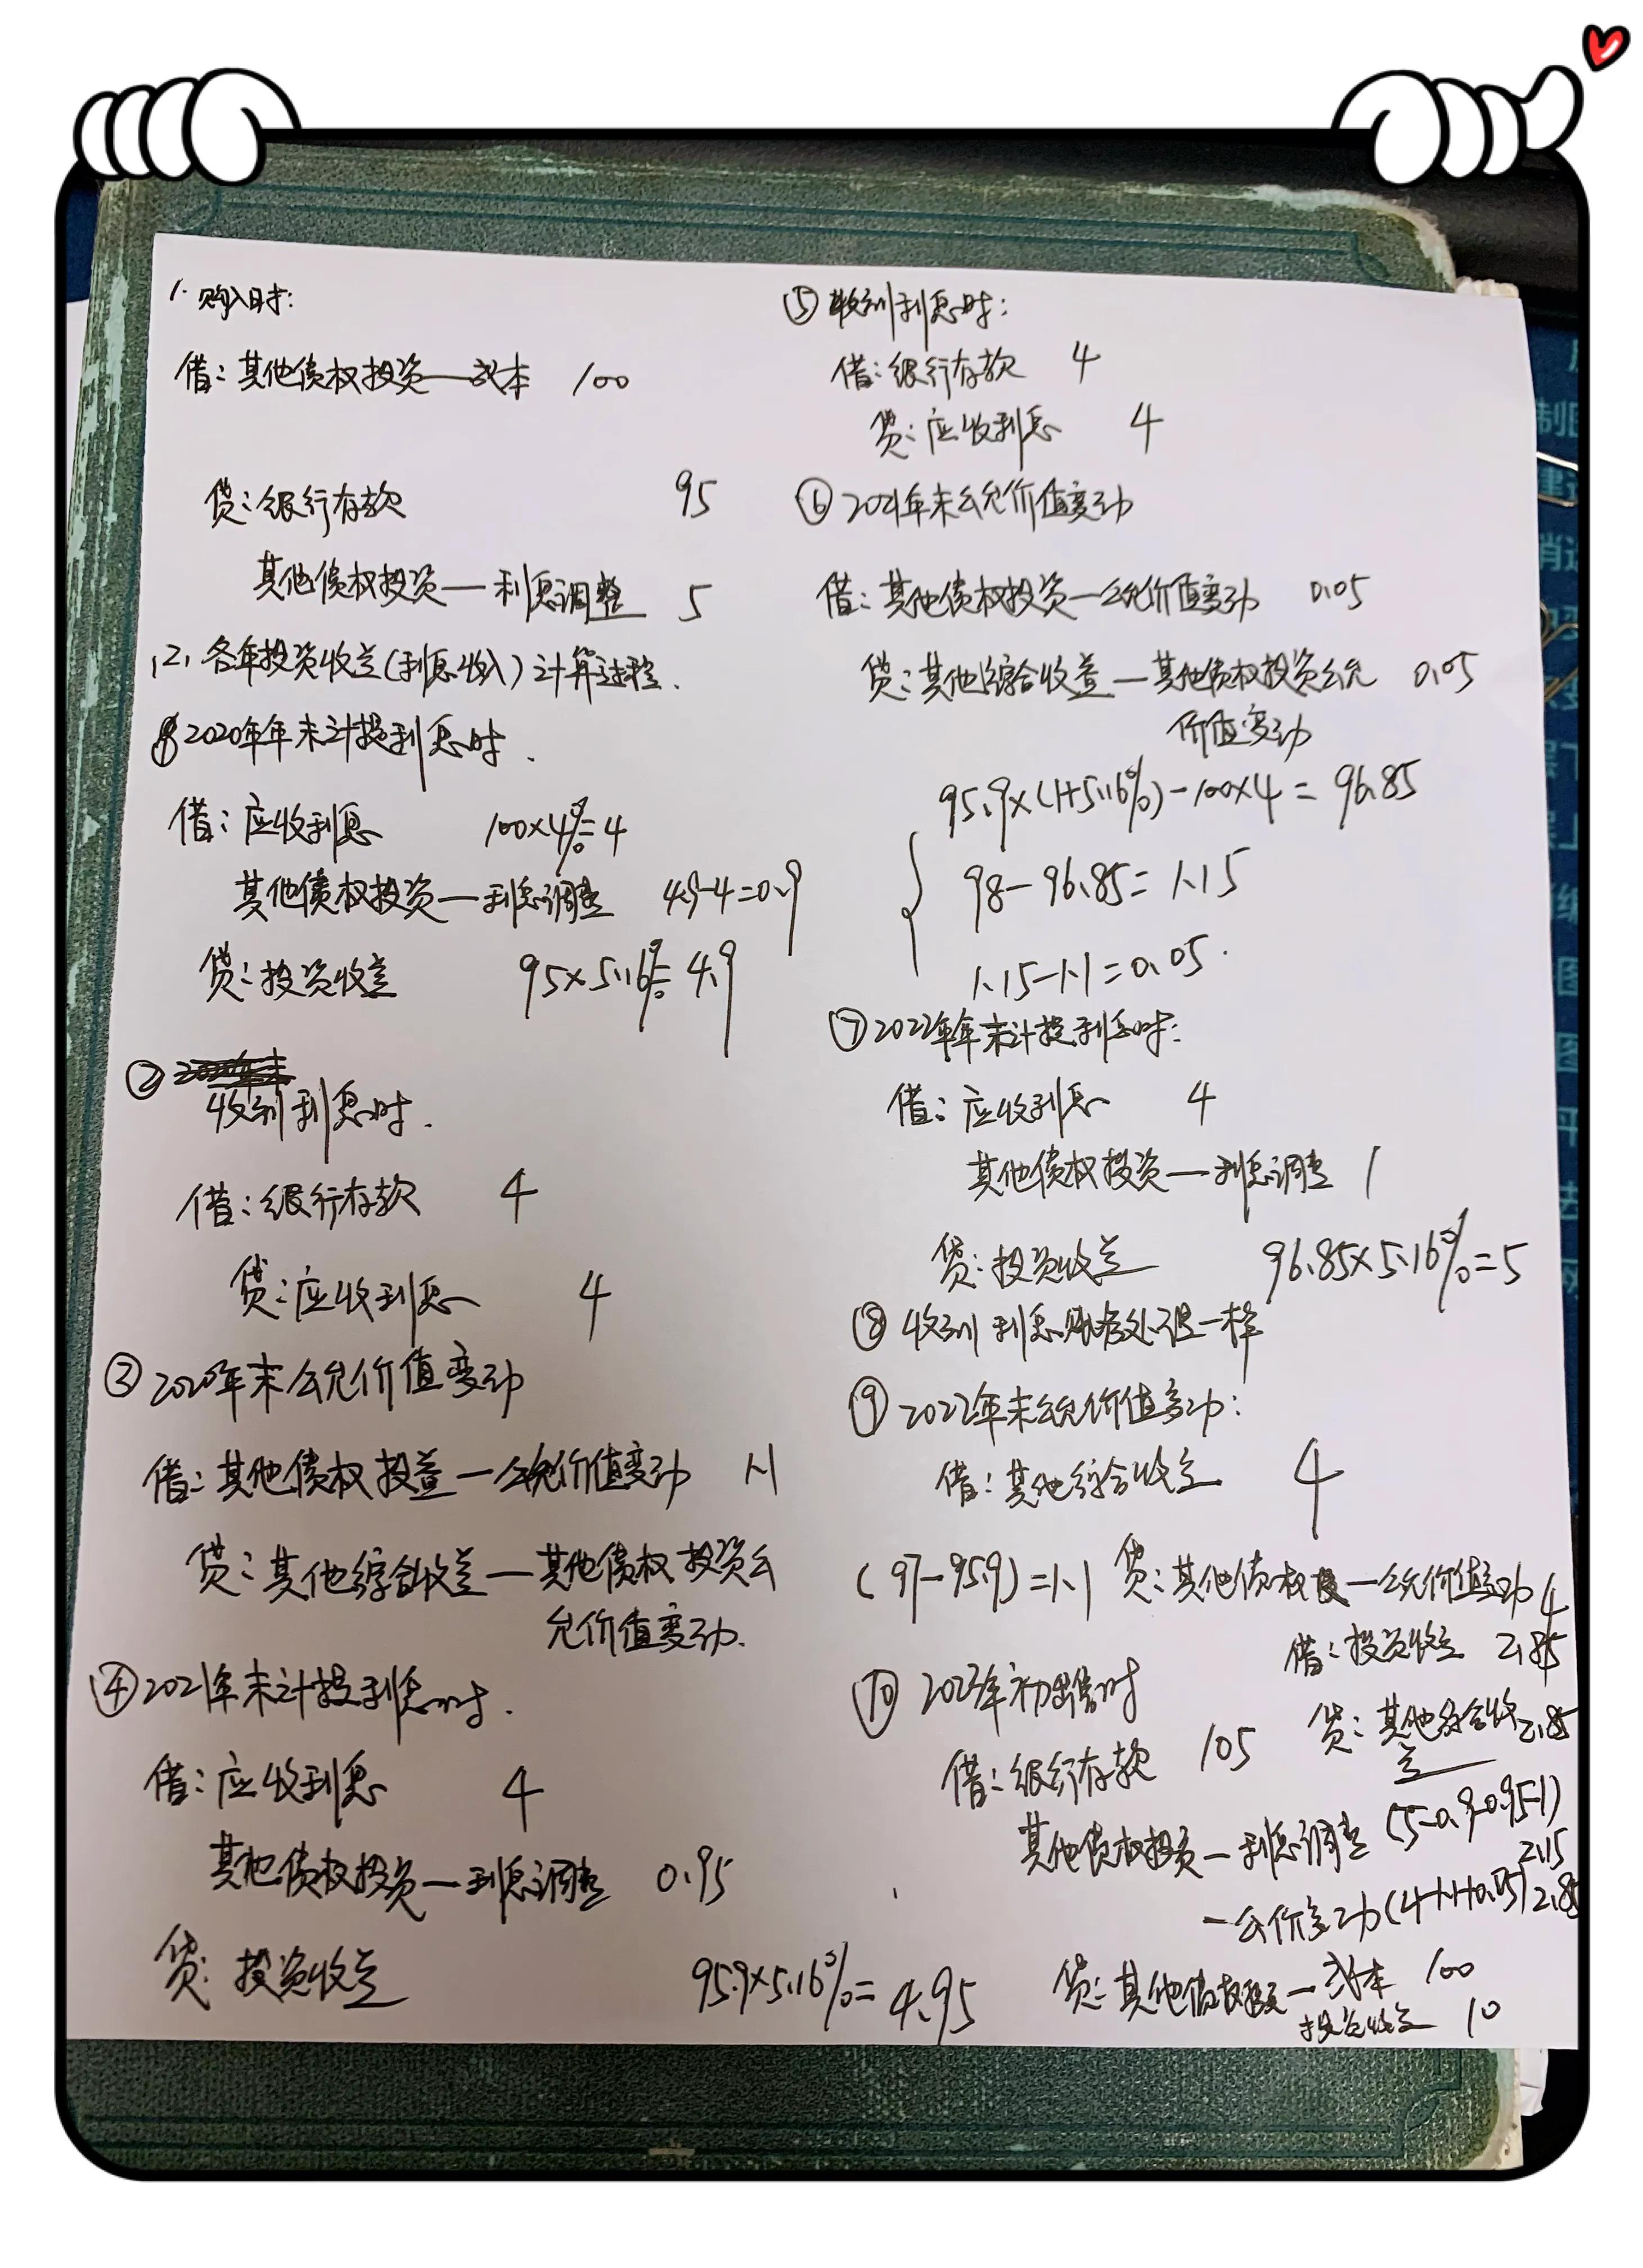 1. 购入时：
借：其他债权投资—成本 100
贷：银行存款 95
其他债权投资—利息调整 5
2. 各年投资收益(利息收入)计算过程.
① 2020年年末计提利息时.
借：应收利息 100×4%=4
其他债权投资—利息调整 4.9-4=0.9
贷：投资收益 95×5.16%=4.9
②
收到利息时.
借：银行存款 4
贷：应收利息 4
③ 2020年末公允价值变动
借：其他债权投益—公允价值变动 1.1
贷：其他综合收益—其他债权投资公
允价值变动. (97-95.9)=1.1
④ 2021年末计提利息时.
借：应收利息 4
其他债权投资—利息调整 0.95
贷：投资收益 95.9×5.16%=4.95
⑤ 收到利息时：
借：银行存款 4
贷：应收利息 4
⑥ 2021年末公允价值变动
借：其他债权投资—公允价值变动 0.05
贷：其他综合收益—其他债权投资公允 0.05
价值变动
95.9×(1+5.16%)-100×4=96.85
98-96.85=1.15
1.15-1.1=0.05.
⑦ 2022年年末计提利息时：
借：应收利息 4
其他债权投资—利息调整 1
贷：投资收益 96.85×5.16%=5
⑧ 收到利息账务处理一样
⑨ 2022年末公允价值变动：
借：其他综合收益 4
贷：其他债权投—公允价值变动 4
借：投资收益 2.85
贷：其他综合收 2.85
益
⑩ 2023年初出售时
借：银行存款 105
其他债权投资—利息调整 (5-0.9-0.95-1)
2.15
—公价变动(4-1.1+0.05) 2.85
贷：其他债权投资—成本 100
投资收益 10